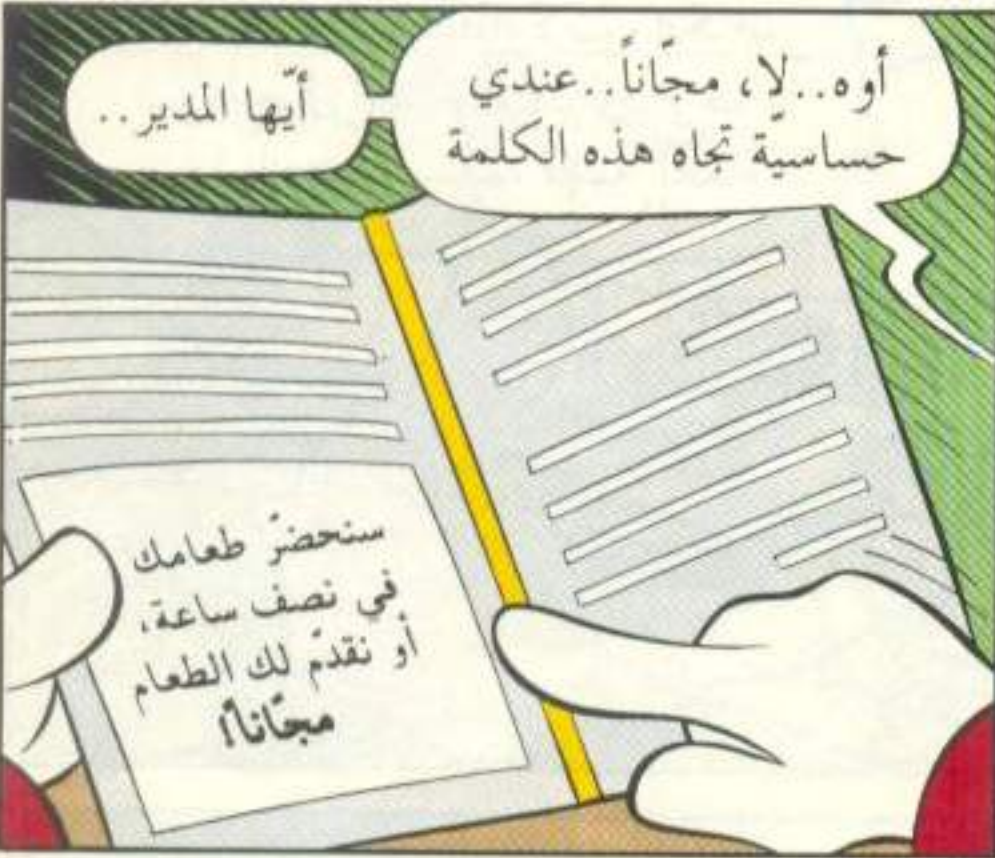 أوه..لا، مجّاناً..عندي
حساسيّة تجاه هذه الكلمة
أيّها المدير..
سنحضرّ طعامك
في نصف ساعة،
أو نقدّم لك الطعام
مجّاناً!